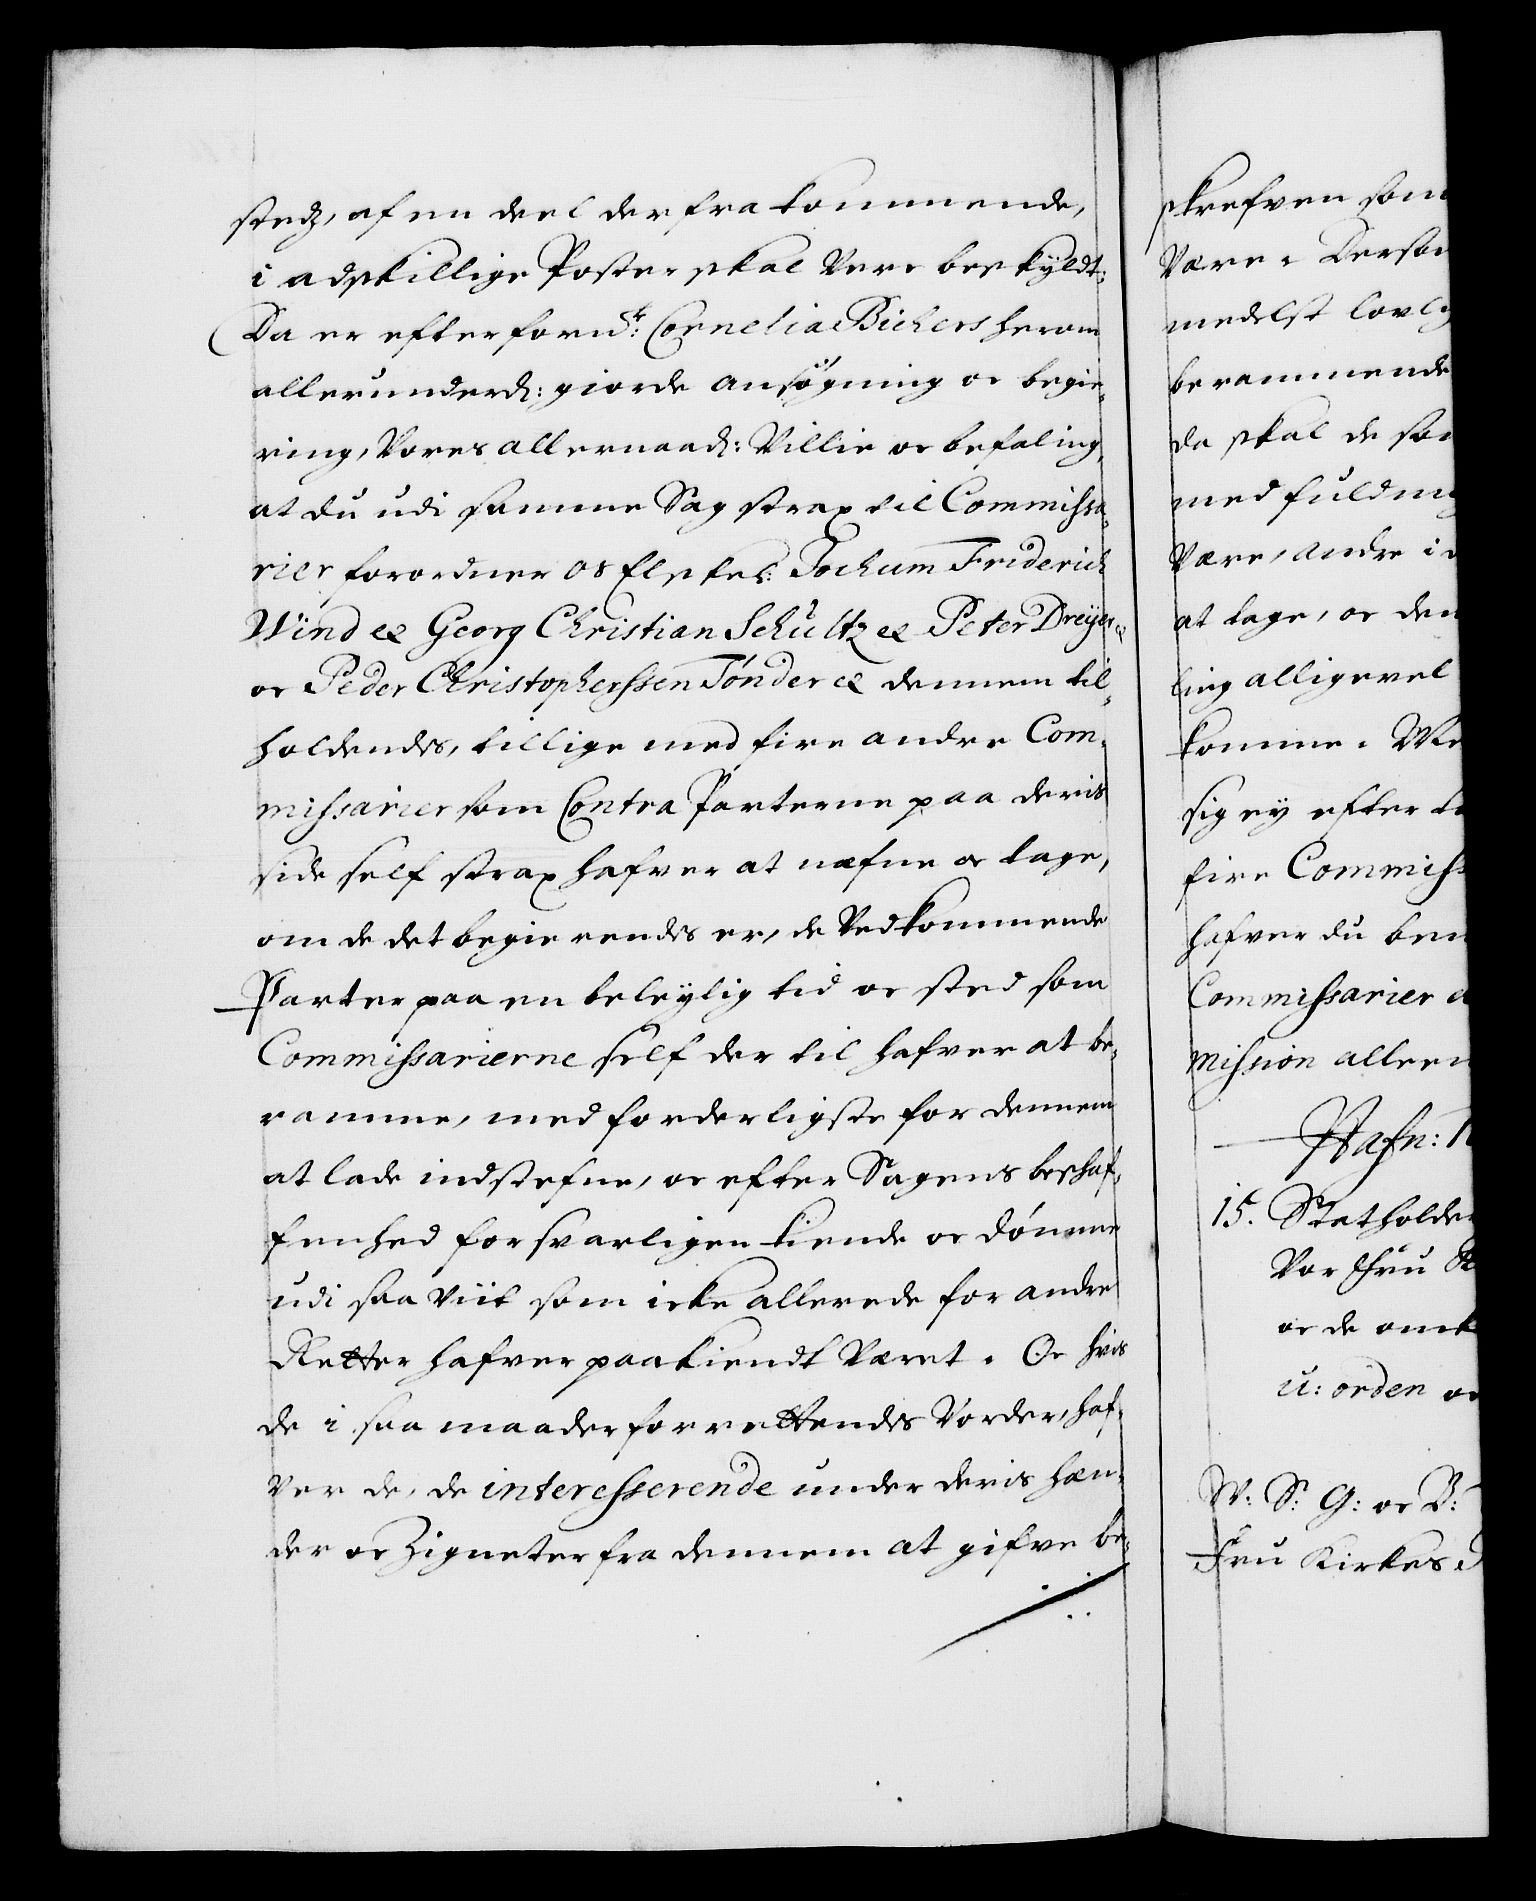 stedz, af en deel der fra kommende,
i adskillige Poster skal Vere beskyldt;
Da er efter fornᵗ: Cornelia Bichers herom
allerunderd: giorde ansøgning oc begie-
ring, Vores allernaad: Villie oc befaling,
at du udi samme Sag strax til Commissa-
rier forordner os Elskel: Jochum Friderich
Wind &c Georg Christian Schultz &c Peter Dreyer &c
oc Peder Christopherssen Tønder &c dennem til-
holdendis, tillige med fire andre Com-
missarier som Contra Parterne paa deris
side self strax hafver at næfne oc tage,
om de det begierendis er, de Vedkommende
Parter paa en beleylig tid oc sted som
Commissarierne self der til hafver at be-
ramme, med forderligste for dennem
at lade indstefne, oc efter Sagens beschaf-
fenhed forsvarligen kiende oc dømme
udi saa viit som icke allerede for andre
Retter hafver paakiendt Været. Oc hvis
de i saa maader forrettendis Vorder, haf-
ver de, de interesserende under deris hæn-
der oc Zigneter fra dennem at gifve be-
skrefven som
Være. Dersom
medelst lovlig
berammende
da skal de som
med fuldm
Være, andre i
at tage, oc den
ling alligevel
komme. Me
sig ey efter
fire Commiss
hafver du
Commissarier
mission alleen
Hafn:
15. Statholder
Vor Fru
oc de omk
u: orden oc
W: S: G: oc B:
Fru Kirkes